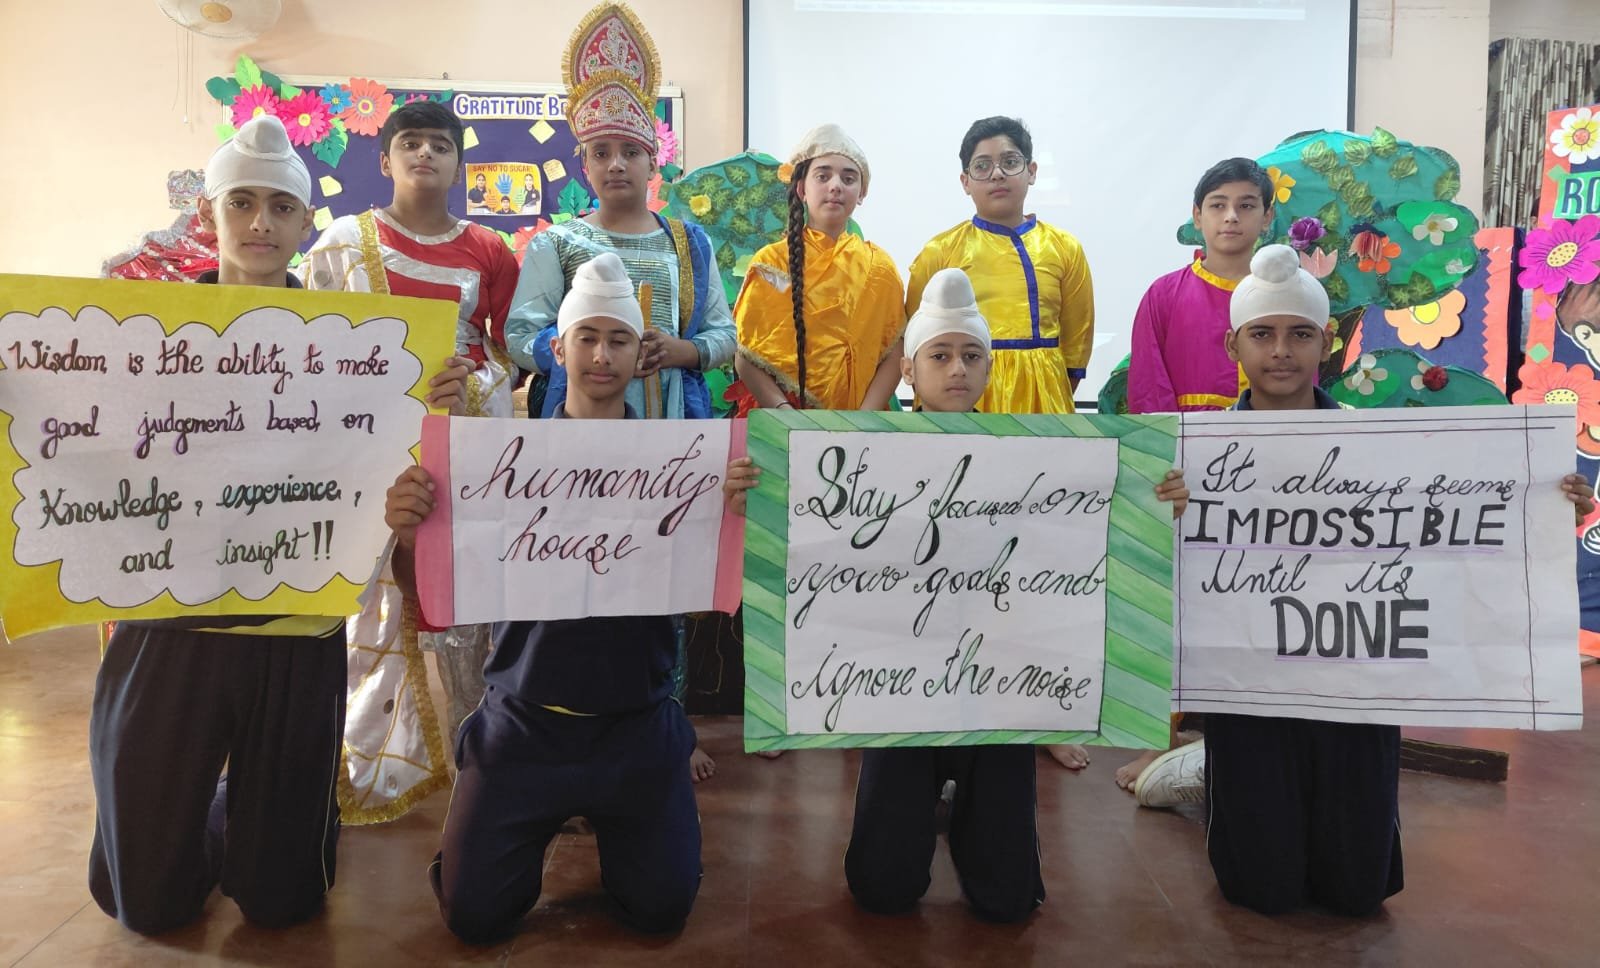 GRATITUDE BO
SAY NO TO SUGAR!
RO
Wisdom is the ability to make
good judgements based on
Knowledge, experience,
and insight!!
humanity
house
Stay focused on
your goals and
ignore the noise
It always seems
IMPOSSIBLE
Until its
DONE